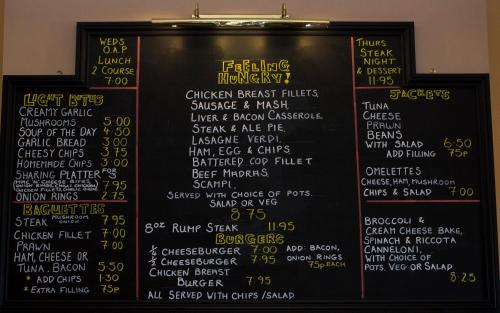 WEDS
O.A.P
LUNCH
2 COURSE
7.00
LIGHT BITES
CREAMY GARLIC
MUSHROOMS 5.00
SOUP OF THE DAY 4.50
GARLIC BREAD 3.00
CHEESY CHIPS 3.75
HOMEMADE CHIPS 3.00
SHARING PLATTER FOR
7.95
ONION RINGS 2.75
BAGUETTES
STEAK MUSHROOM ONION 7.95
CHICKEN FILLET 7.00
PRAWN 7.00
HAM, CHEESE OR
TUNA, BACON 5.50
* ADD CHIPS 1.30
* EXTRA FILLING 75p
FEELING
HUNGRY!
CHICKEN BREAST FILLETS,
SAUSAGE & MASH,
LIVER & BACON CASSEROLE,
STEAK & ALE PIE,
LASAGNE VERDI,
HAM, EGG & CHIPS,
BATTERED COD FILLET
BEEF MADRAS,
SCAMPI,
SERVED WITH CHOICE OF POTS.
SALAD OR VEG
8.75
8oz RUMP STEAK 11.95
BURGERS
1/4 CHEESEBURGER 7.00 ADD: BACON,
1/2 CHEESEBURGER 7.95 ONION RINGS
75p EACH
CHICKEN BREAST
BURGER 7.95
ALL SERVED WITH CHIPS/SALAD
THURS
STEAK
NIGHT
& DESSERT
11.95
JACKETS
TUNA
CHEESE
PRAWN
BEANS
WITH SALAD 6.50
ADD FILLING 75p
OMELETTES
CHEESE, HAM, MUSHROOM
CHIPS & SALAD 7.00
BROCCOLI &
CREAM CHEESE BAKE,
SPINACH & RICCOTA
CANNELONI,
WITH CHOICE OF
POTS, VEG OR SALAD
8.25